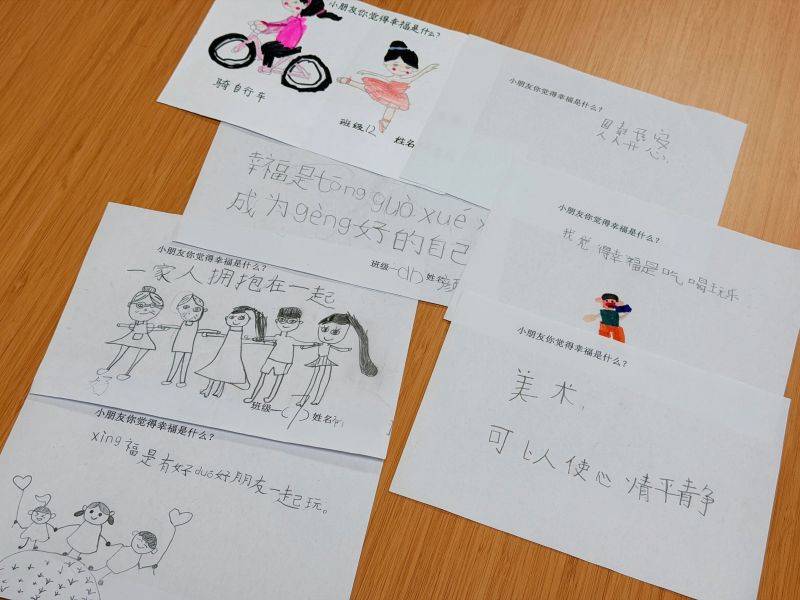 小朋友你觉得幸福是什么？
骑自行车
班级12
姓名
小朋友你觉得幸福是什么？
人人开心.
幸福是tōng guò xué
成为gèng好的自己
班级一
姓名
小朋友你觉得幸福是什么？
我觉得幸福是吃喝玩乐
小朋友你觉得幸福是什么？
一家人拥抱在一起
班级一(1)姓名
小朋友你觉得幸福是什么？
美术,
可以人使心情平静
小朋友你觉得幸福是什么？
xìng福是有好duō好朋友一起玩。